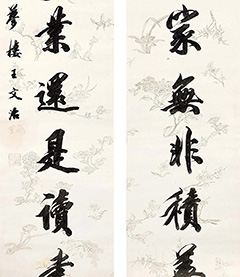 家無非積善
業還是讀書
夢樓王文治